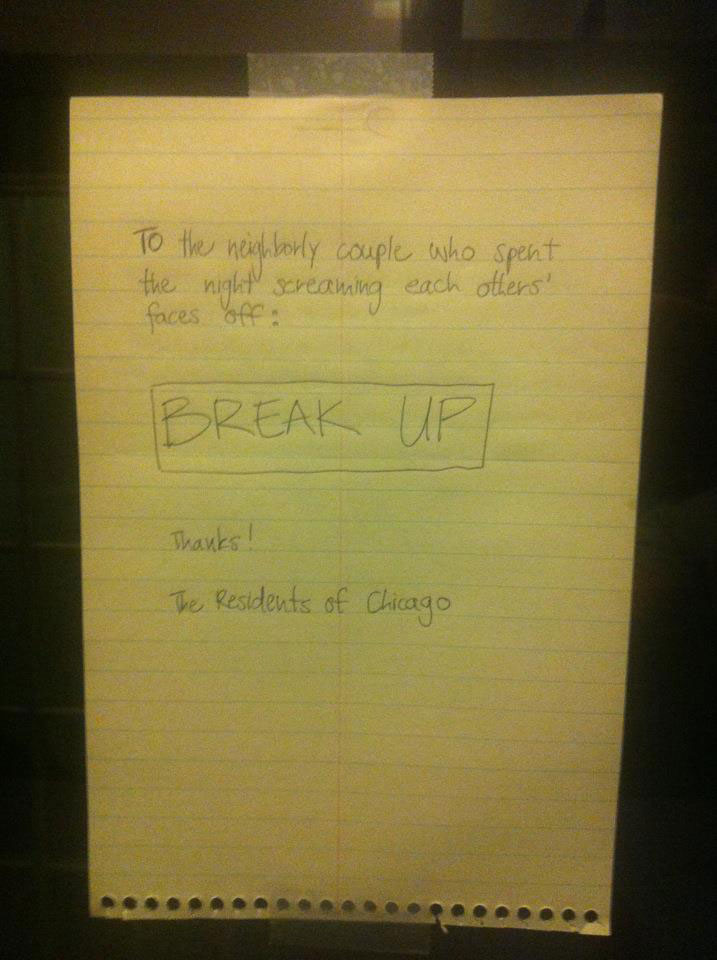 To the neighborly couple who spent
the night screaming each others'
faces off:
BREAK UP
Thanks!
The Residents of Chicago